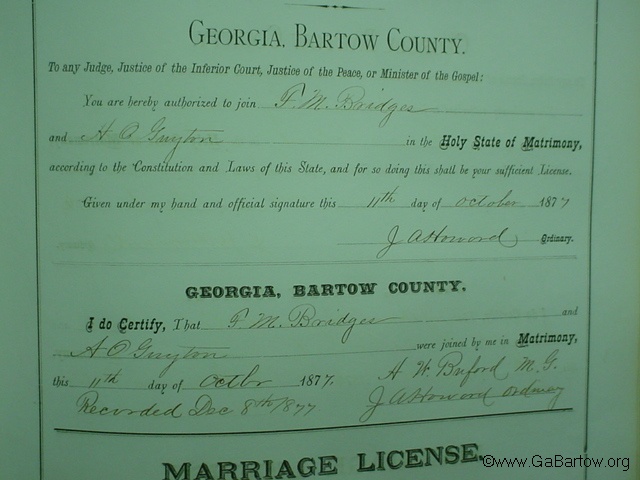 GEORGIA, BARTOW COUNTY.
To any Judge, Justice of the Inferior Court, Justice of the Peace, or Minister of the Gospel:
You are hereby authorized to join F. M. Bridges
and H O Guyton in the Holy State of Matrimony,
according to the Constitution and Laws of this State, and for so doing this shall be your sufficient License.
Given under my hand and official signature this 11th day of October 1877
J A Howard Ordinary.
GEORGIA, BARTOW COUNTY.
I do Certify, That F. M. Bridges and
A O Guyton were joined by me in Matrimony,
this 11th day of Octbr 1877. A W Buford M. G.
Recorded Dec 8th 1877 J A Howard Ordinary
MARRIAGE LICENSE.
©www.GaBartow.org